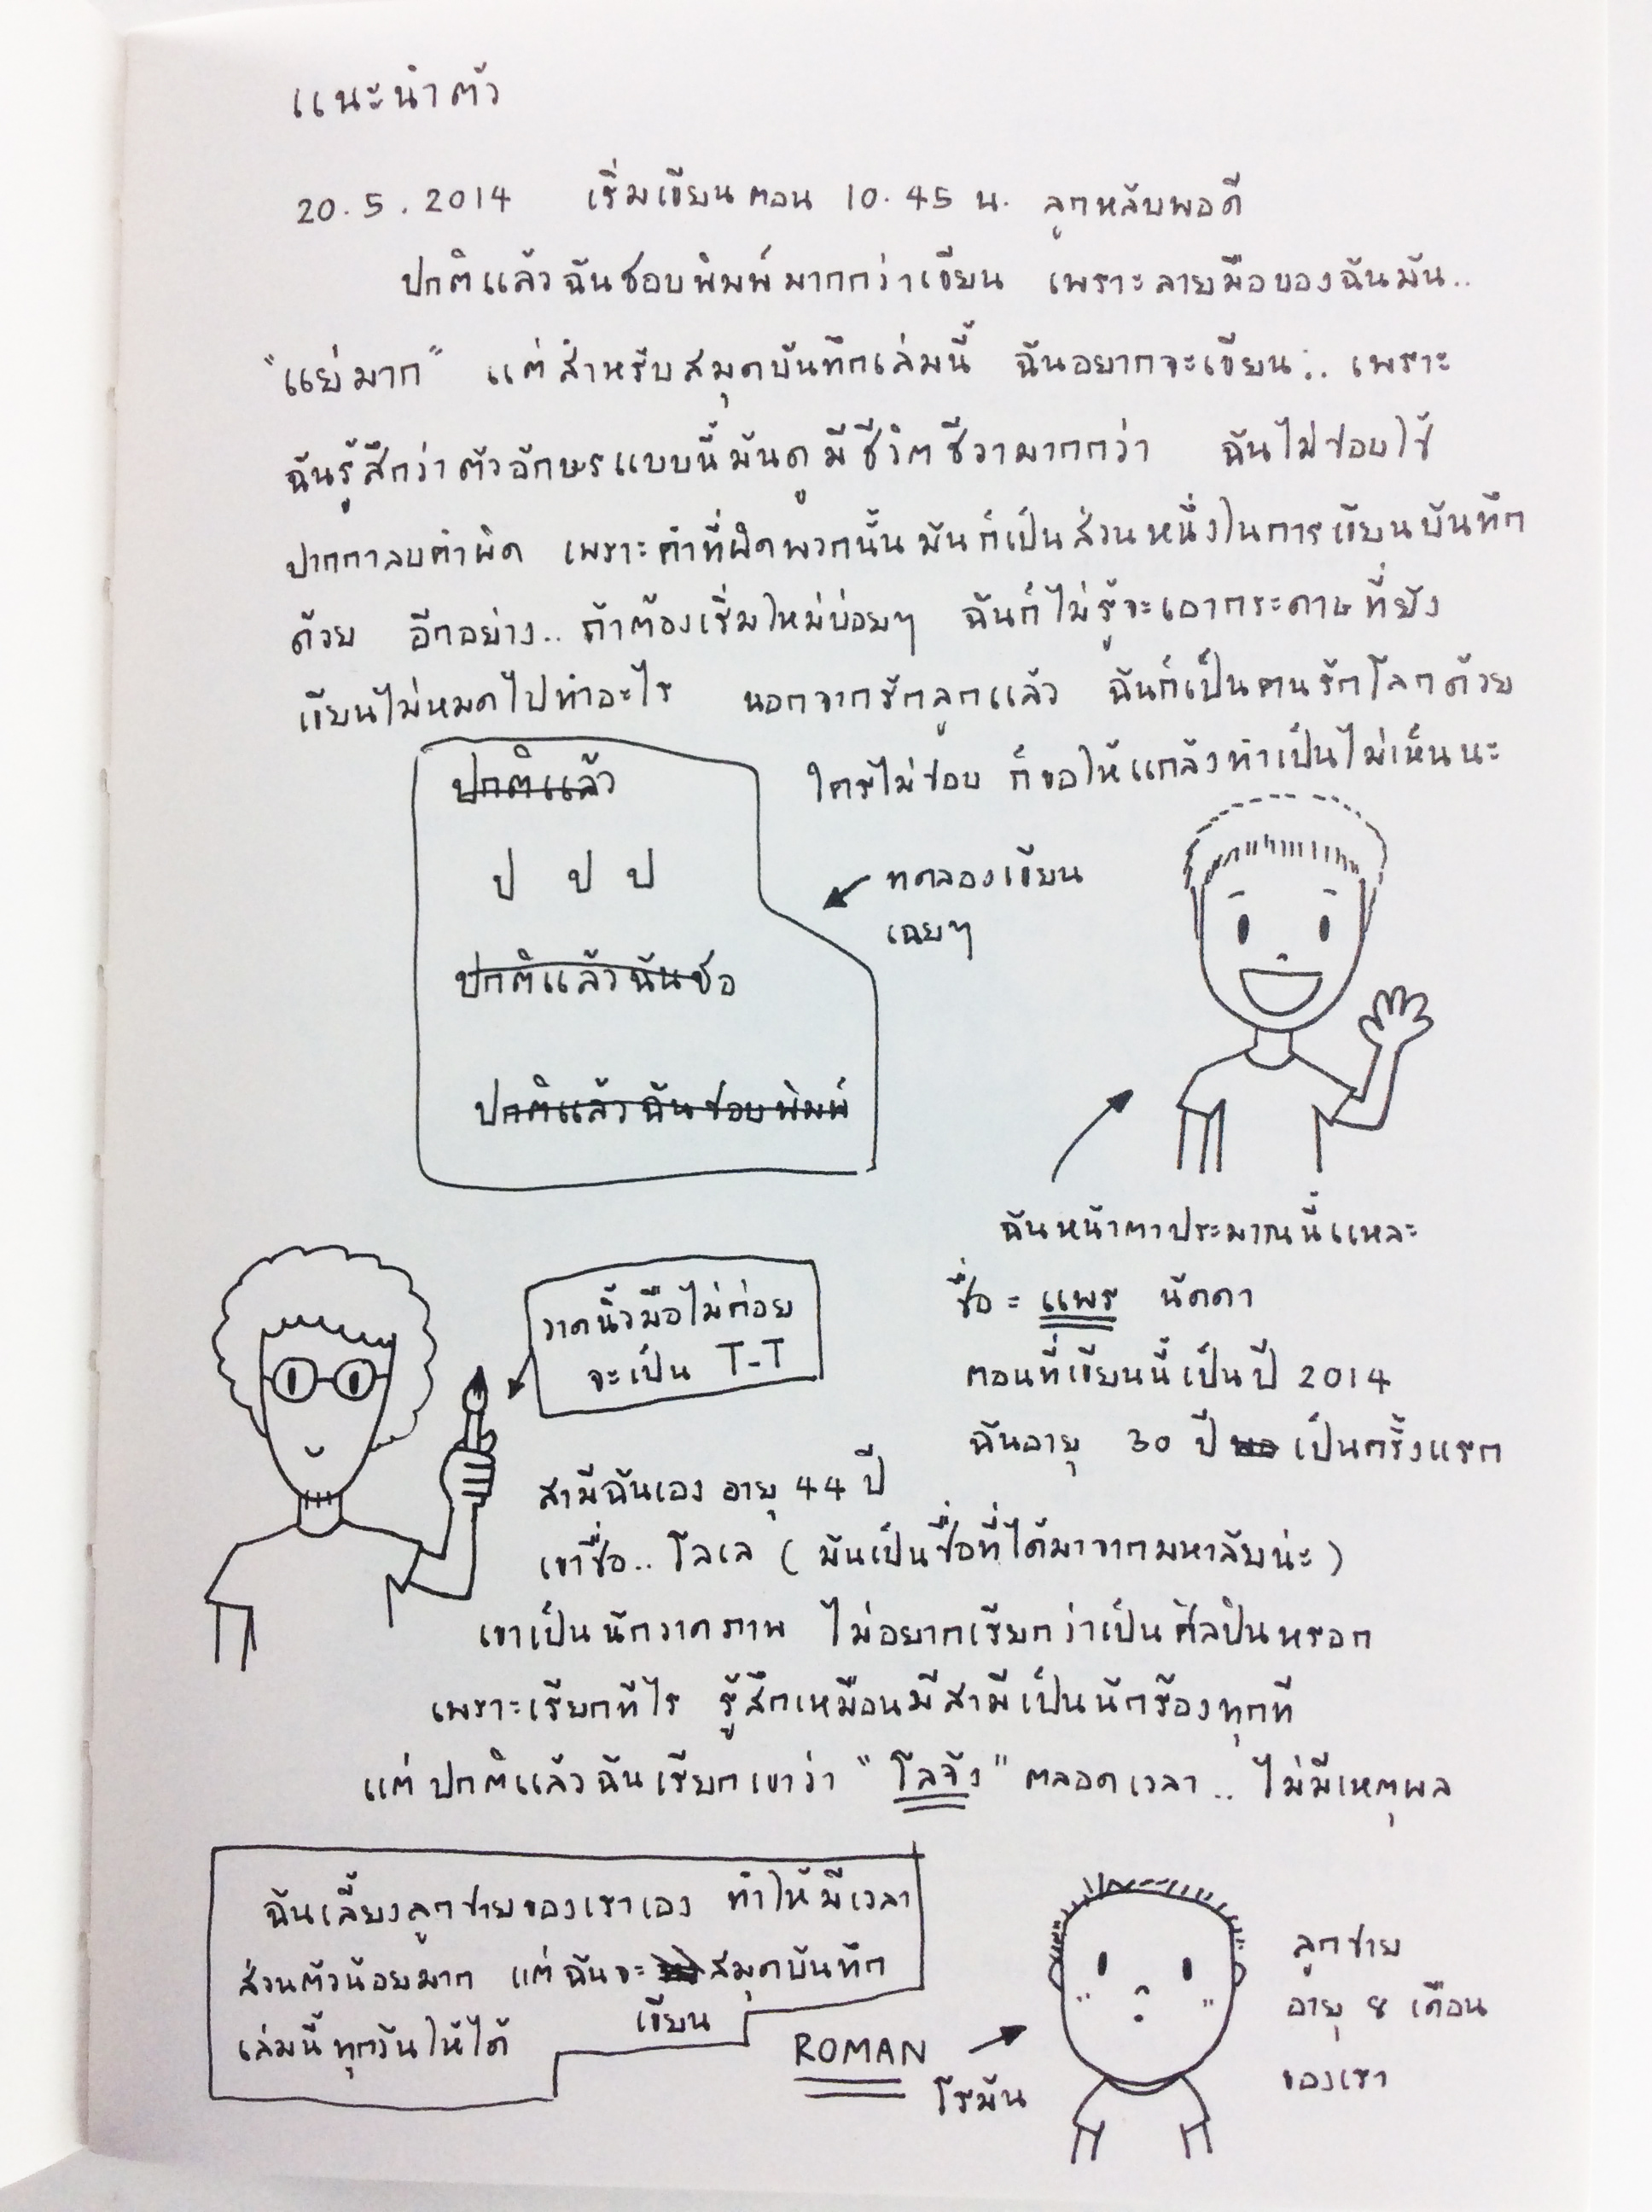 แนะนำตัว
20.5.2014 เริ่มเขียนตอน 10.45 น. ลูกหลับพอดี
ปกติแล้วฉันชอบพิมพ์มากกว่าเขียน เพราะลายมือของฉันมัน..
"แย่มาก" แต่สำหรับสมุดบันทึกเล่มนี้ ฉันอยากจะเขียน.. เพราะ
ฉันรู้สึกว่าตัวอักษรแบบนี้มันดูมีชีวิตชีวามากกว่า ฉันไม่ชอบใช้
ปากกาลบคำผิด เพราะคำที่ผิดพวกนั้นมันก็เป็นส่วนหนึ่งในการเขียนบันทึก
ด้วย อีกอย่าง.. ถ้าต้องเริ่มใหม่บ่อยๆ ฉันก็ไม่รู้จะเอากระดาษที่ยัง
เขียนไม่หมดไปทำอะไร นอกจากรักลูกแล้ว ฉันก็เป็นคนรักโลกด้วย
ใครไม่ชอบ ก็ขอให้แกล้งทำเป็นไม่เห็นนะ
ปกติแล้ว
ป ป ป
ปกติแล้วฉันชอ
ปกติแล้วฉันชอบพิมพ์
ทดลองเขียน
เฉยๆ
ฉันหน้าตาประมาณนี้แหละ
ชื่อ = แพร นัดดา
ตอนที่เขียนนี้เป็นปี 2014
ฉันอายุ 30 ปี เป็นครั้งแรก
วาดนิ้วมือไม่ค่อย
จะเป็น T-T
สามีฉันเอง อายุ 44 ปี
เขาชื่อ.. โลเล (มันเป็นชื่อที่ได้มาจากมหาลัยน่ะ)
เขาเป็นนักวาดภาพ ไม่อยากเรียกว่าเป็นศิลปินหรอก
เพราะเรียกทีไร รู้สึกเหมือนมีสามีเป็นนักร้องทุกที
แต่ปกติแล้วฉันเรียกเขาว่า "โลจัง" ตลอดเวลา.. ไม่มีเหตุผล
ฉันเลี้ยงลูกชายของเราเอง ทำให้มีเวลา
ส่วนตัวน้อยมาก แต่ฉันจะ สมุดบันทึก
เขียน
เล่มนี้ทุกวันให้ได้
ROMAN
โรมัน
ลูกชาย
อายุ 8 เดือน
ของเรา